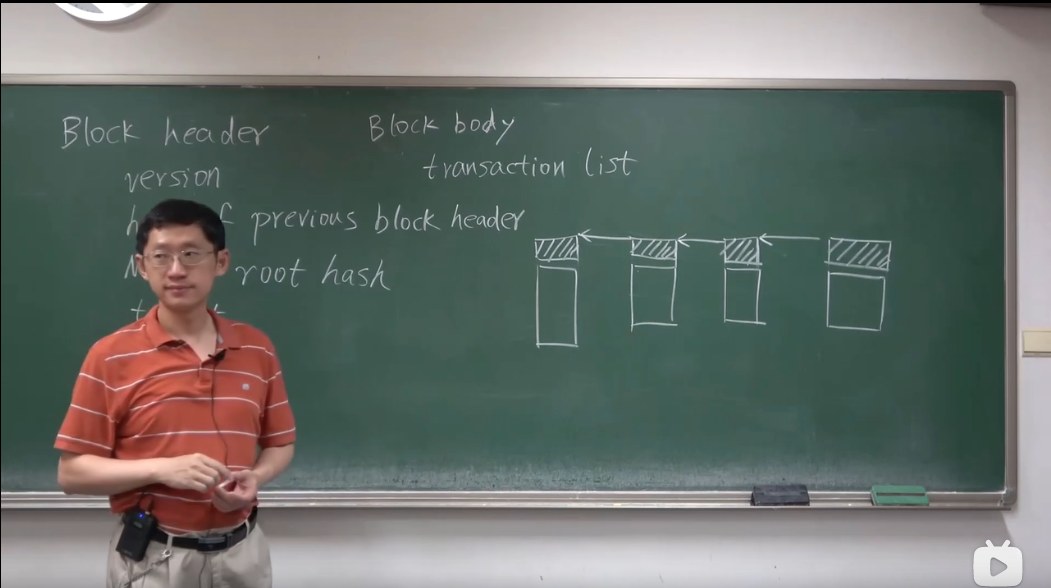 Block header
version
previous block header
root hash
Block body
transaction list